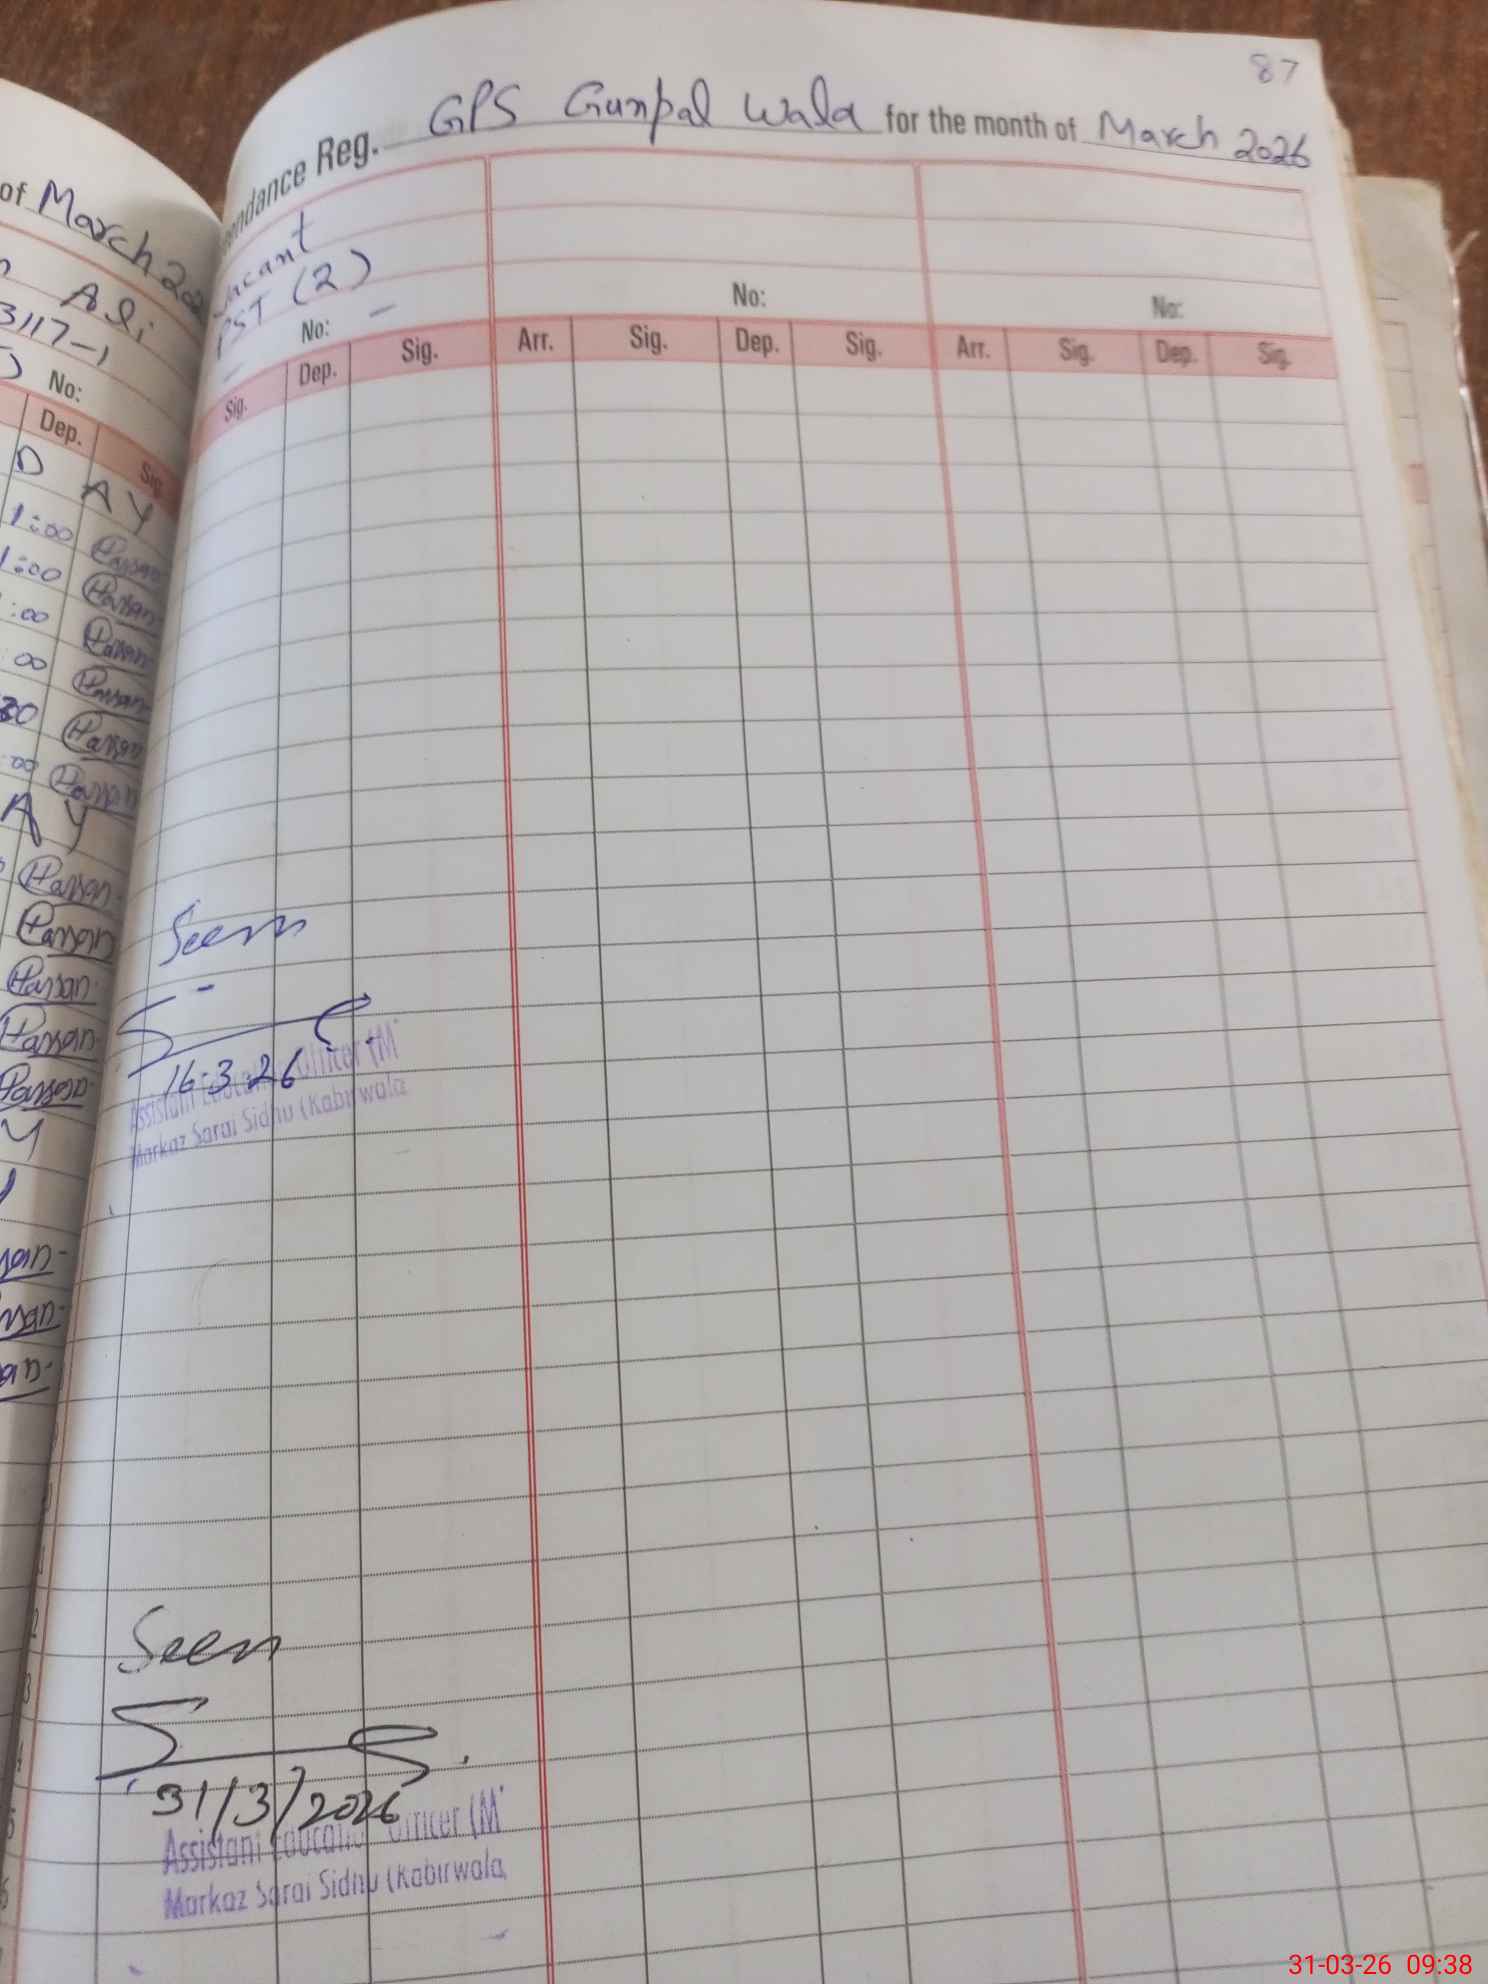 of March 20
Ali
3117-1
No:
Dep. Sig.
D A Y
1:00 Hassan
1:00 Hassan
:00 Hassan
:00 Hassan
30 Hassan
:00 Hassan
A Y
Hassan
Hassan
Hassan
Hassan
Hassan
Y
san
ssan
an
87
endance Reg. GPS Gunpal Wala for the month of March 2026
Vacant
PST (2)
No: –
No:
No:
Sig. Dep. Sig. Arr. Sig. Dep. Sig. Arr. Sig. Dep. Sig.
Seen
16-3-26
Assistant Education Officer (M
Markaz Sarai Sidhu (Kabirwala
Seen
31/3/2026
Assistant Education Officer (M
Markaz Sarai Sidhu (Kabirwala
31-03-26 09:38